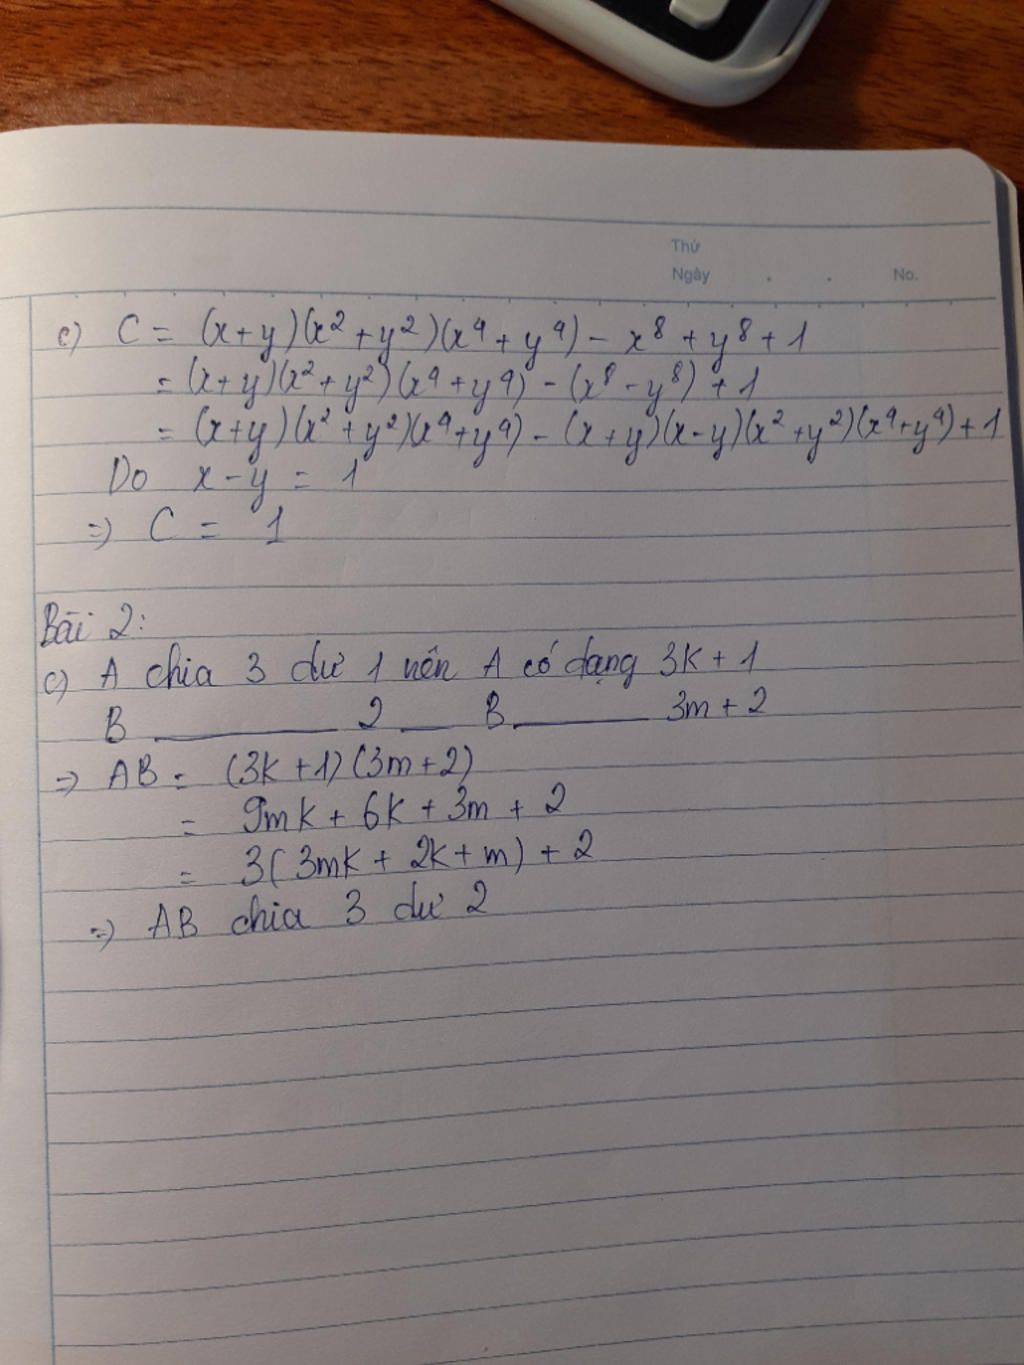 Thứ
Ngày . . No.
c) C = (x+y)(x² + y²)(x⁴ + y⁴) - x⁸ + y⁸ + 1
= (x+y)(x² + y²)(x⁴ + y⁴) - (x⁸ - y⁸) + 1
= (x+y)(x² + y²)(x⁴+y⁴) - (x+y)(x-y)(x²+y²)(x⁴+y⁴)+1
Do x - y = 1
=> C = 1
Bài 2:
c) A chia 3 dư 1 nên A có dạng 3k + 1
B ______ 2 __ B ______ 3m + 2
=> AB = (3k + 1)(3m+2)
= 9mk + 6k + 3m + 2
= 3(3mk + 2k + m) + 2
=> AB chia 3 dư 2